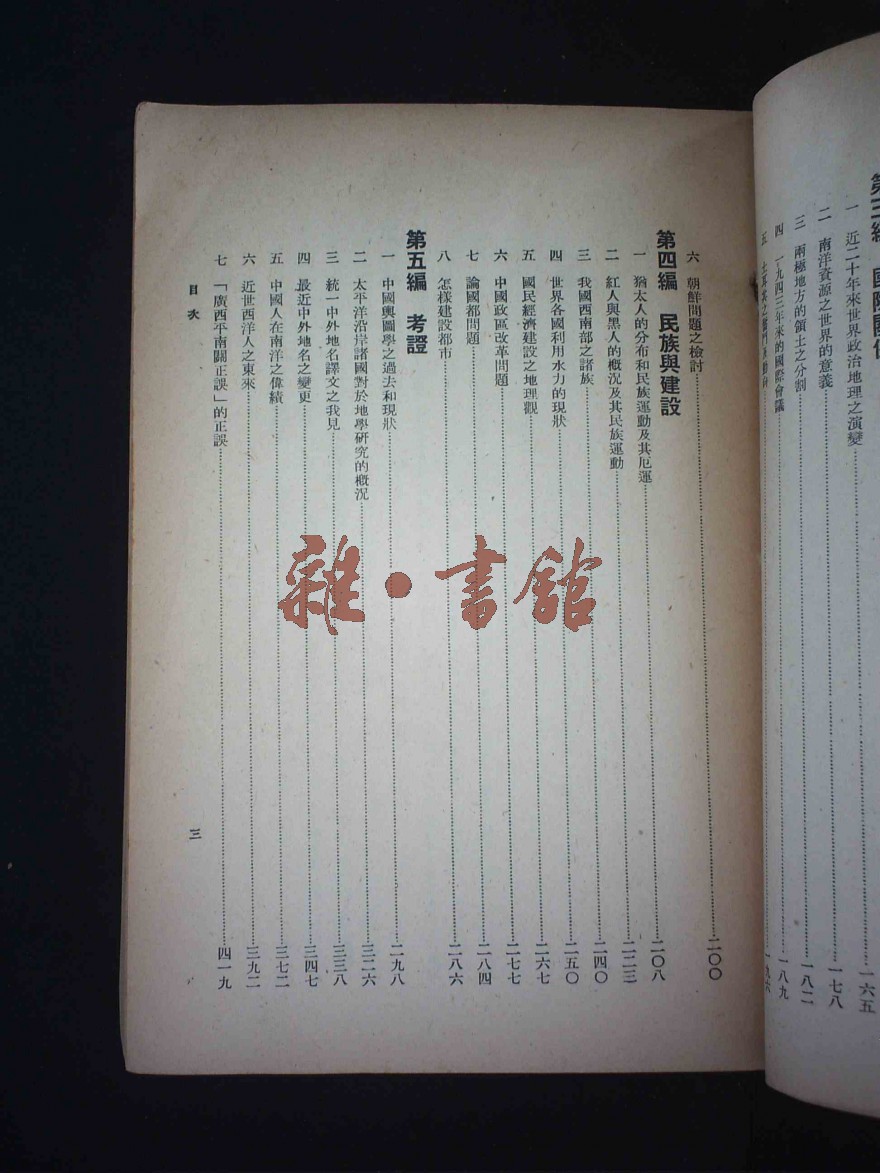 第三編 國際關係
一 近二十年來世界政治地理之演變 一六五
二 南洋資源之世界的意義 一七八
三 兩極地方的領土之分割 一八二
四 一九四三年來的國際會議 一八九
五 一九六
六 朝鮮問題之檢討 二〇〇
第四編 民族與建設
一 猶太人的分布和民族運動及其厄運 二〇八
二 紅人與黑人的概況及其民族運動 二二三
三 我國西南部之諸族 二四〇
四 世界各國利用水力的現狀 二五〇
五 國民經濟建設之地理觀 二六七
六 中國政區改革問題 二七七
七 論國都問題 二八四
八 怎樣建設都市 二八六
第五編 考證
一 中國輿圖學之過去和現狀 二九八
二 太平洋沿岸諸國對於地學研究的概況 三二六
三 統一中外地名譯文之我見 三三八
四 最近中外地名之變更 三四七
五 中國人在南洋之偉績 三七二
六 近世西洋人之東來 三九二
七 「廣西平南關正誤」的正誤 四一九
目次
三
雜·書館